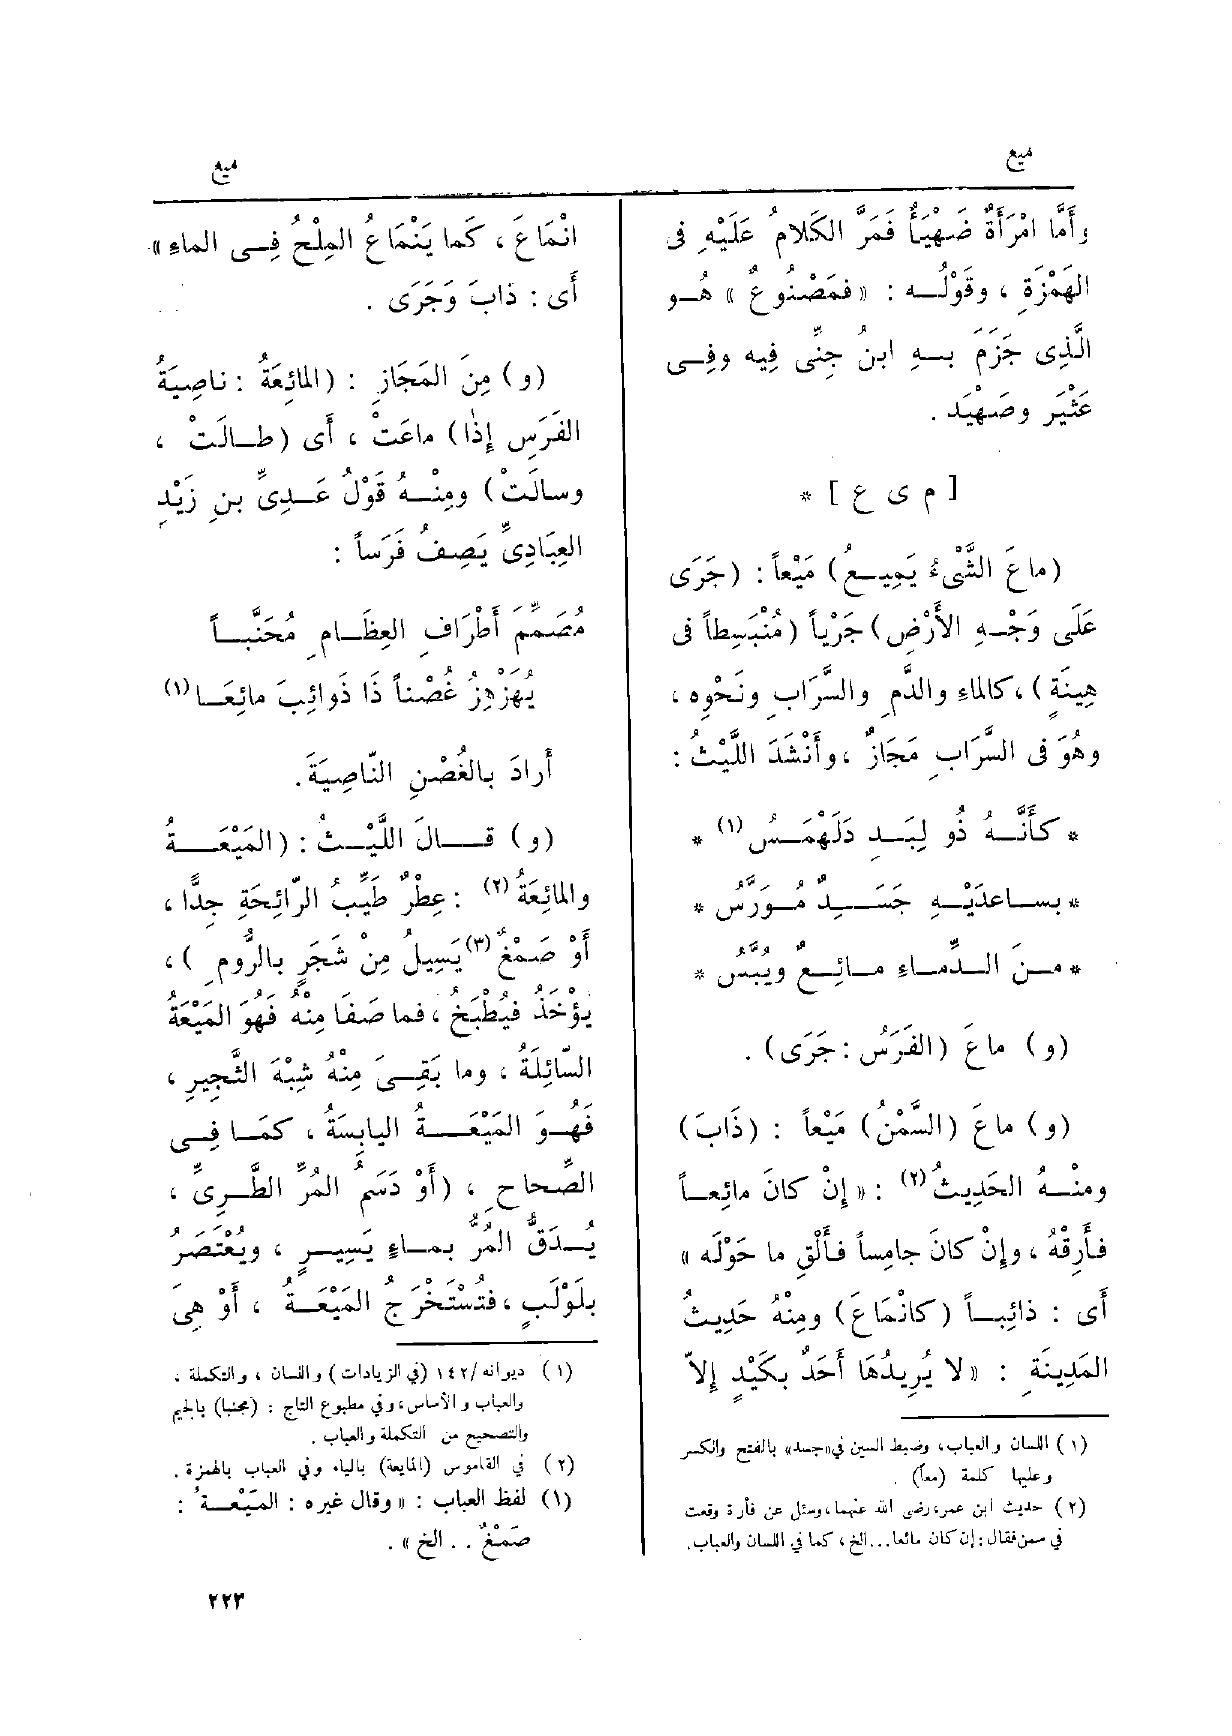 ميع
وأَمَّا امْرَأَةٌ ضَهْيَأٌ فَمَرَّ الكَلامُ عَلَيْهِ فى
الهَمْزَةِ ، وقَوْلُـــه : « فمَصْنُوعٌ » هُــو
الَّذِى جَزَمَ بـــهِ ابنُ جِنِّى فِيه وفِــى
عَثْيَر وصَهْيَد .
[ م ى ع ] *
(ماعَ الشَّىْءُ يَمِيــعُ) مَيْعاً: (جَرَى
عَلَى وَجْــهِ الأَرْضِ) جَرْياً (مُنْبَسِطاً فى
هِينَةٍ) ، كالماءِ والدَّمِ والسَّرَابِ ونَحْوِه ،
وهُوَ فى السَّرَابِ مَجَازٌ ، وأَنْشَدَ اللَّيْثُ :
* كأَنَّــهُ ذُو لِبَــدٍ دَلَهْمَــسُ (١) *
* بســاعدَيْــهِ جَسَــدٌ مُوَرَّسُ *
* مــنَ الــدِّمــاءِ مــائِــعٌ ويُبَّسُ *
(و) ماعَ (الفَرَسُ : جَرَى) .
(و) ماعَ (السَّمْنُ) مَيْعاً : (ذَابَ)
ومنْــهُ الحَدِيثُ (٢) : « إِنْ كانَ مائِعــاً
فأَرِقْهُ ، وإِنْ كانَ جامِساً فأَلْقِ ما حَوْلَه »
أَى : ذائِبــاً (كانْماعَ) ومِنْهُ حَدِيثُ
المَدِينَةِ : « لا يُرِيدُهَا أَحَدٌ بكَيْدٍ إِلاّ
(١) اللسان والعباب، وضبط السين في «جسد» بالفتح والكسر
وعليها كلمة (معاً) .
(٢) حديث ابن عمر، رضى الله عنهما، وسئل عن فأرة وقعت
في سمن فقال : إن كان مائعا... الخ ، كما في اللسان والعباب.
ميع
انْمَاعَ ، كَما يَنْمَاعُ المِلْحُ فِــى الماءِ »
أَى : ذابَ وَجَرَى .
(و) مِنَ المَجَازِ : (المائِعَةُ : ناصِيَةُ
الفَرَسِ إِذَا) ماعَتْ ، أَى (طــالَتْ ،
وسالَتْ) ومِنْــهُ قَوْلُ عَــدِىِّ بنِ زَيْدٍ
العِبَادِىِّ يَصِفُ فَرَساً :
مُصَمِّمَ أَطْرَافِ العِظَــامِ مُحَنَّبــاً
يُهَزْهِزُ غُصْناً ذَا ذَوائِبَ مائِعَــا (١)
أَرادَ بالغُصْنِ النّاصِيَةَ.
(و) قــــالَ اللَّيْــثُ : (المَيْعَــــةُ
والمائِعَةُ (٢) : عِطْرٌ طَيِّبُ الرّائِحَةِ جِدًّا ،
أَوْ صَمْغٌ (٣) يَسِيلُ مِنْ شَجَرٍ بالرُّومِ ) ،
يؤْخَذُ فيُطْبَخُ ، فما صَفَا مِنْهُ فَهُوَ المَيْعَةُ
السّائِلَةُ ، وما بَقِــىَ مِنْهُ شِبْهَ الثَّجِيرِ ،
فَهُــوَ المَيْعَــــةُ اليابِسَةُ ، كمَــا فِــى
الصِّحاحِ ، (أَوْ دَسَمُ المُرِّ الطَّــرِىِّ ،
يُــدَقُّ المُرُّ بمــاءٍ يَسِيــرٍ ، ويُعْتَصَرُ
بلَوْلَبٍ ، فتُسْتَخْرَجُ المَيْعَــةُ ، أَوْ هِىَ
(١) ديوانه /١٤٢ (في الزيادات) واللسان ، والتكملة ،
والعباب والأساس، وفي مطبوع التاج : (مجنبا) بالجيم
والتصحيح من التكملة والعباب .
(٢) في القاموس (المايعة) بالياء وفي العباب بالهمزة .
(١) لفظ العباب : « وقال غيره : المَيْعَــةُ :
صَمْغٌ . . الخ » .
٢٢٣